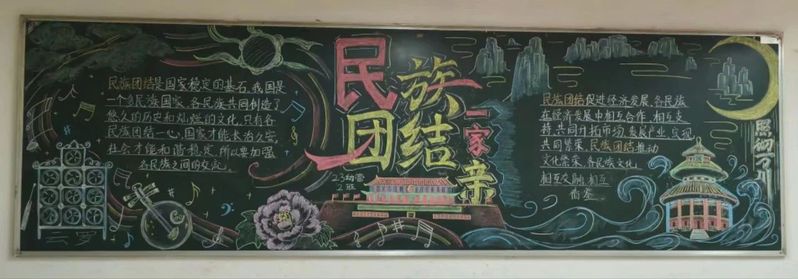 民族团结是国家稳定的基石，我国是
一个多民族国家，各民族共同创造了
悠久的历史和灿烂的文化，只有各
民族团结一心，国家才能长治久安，
社会才能和谐稳定，所以要加强
各民族之间的交流。
云罗
民族
团结
一家亲
23幼管
2班
民族团结促进经济发展，各民族
在经济发展中相互合作，相互支
持，共同开拓市场，发展产业，实现
共同繁荣，民族团结推动
文化繁荣，各民族文化
相互交融，相互
借鉴
照彻万川